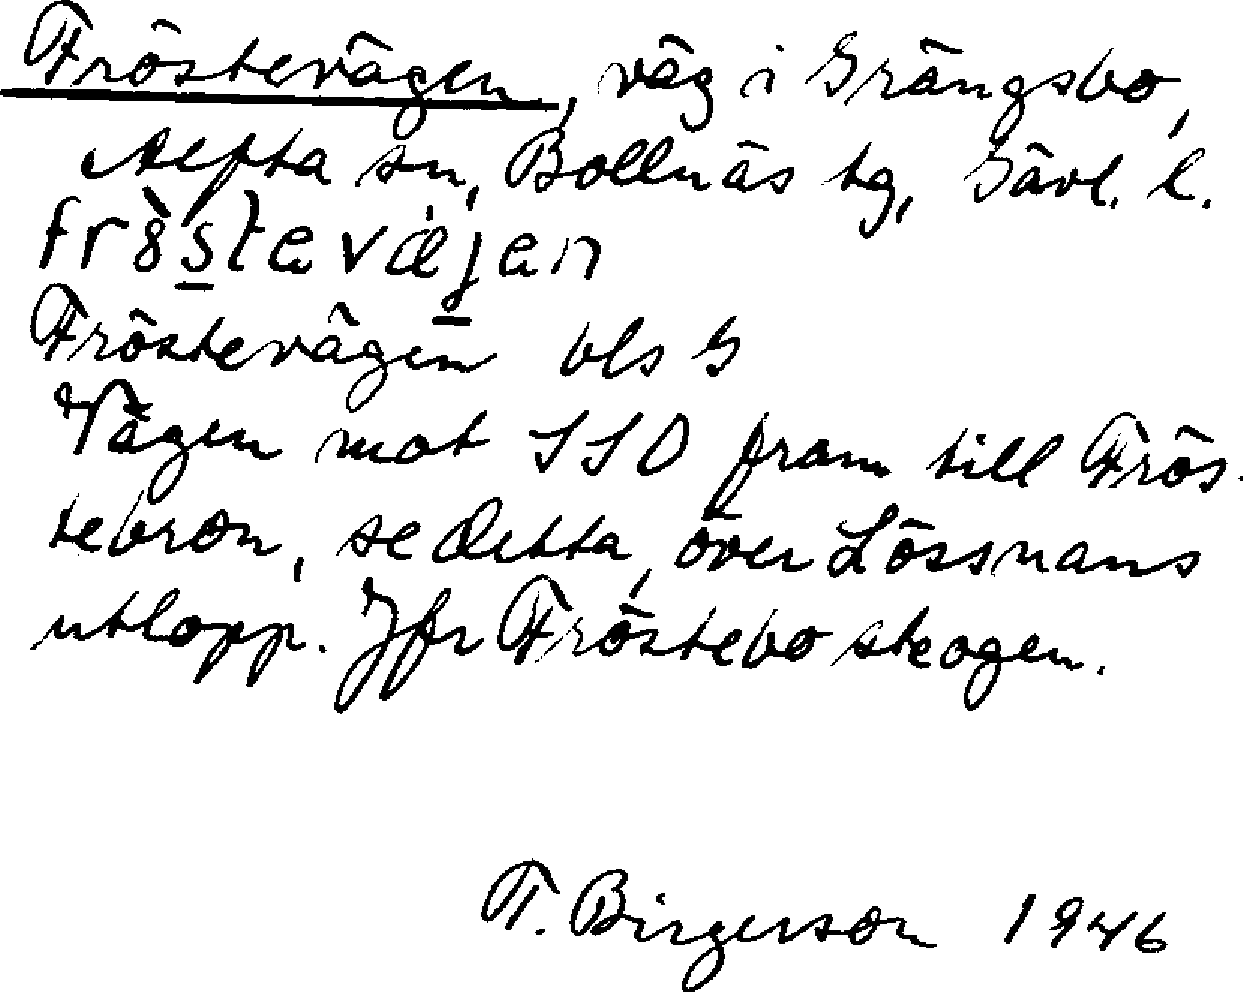 Fröstevägen, väg i Grängsbo,
Alfta sn, Bollnäs tg, Gävl. l.
Fröstevägen bls G
Vägen mot SSO fram till Frös-
tebron, se detta, över Lössnans
utlopp. Jfr Fröstebo skogen.
T. Birgerson 1946